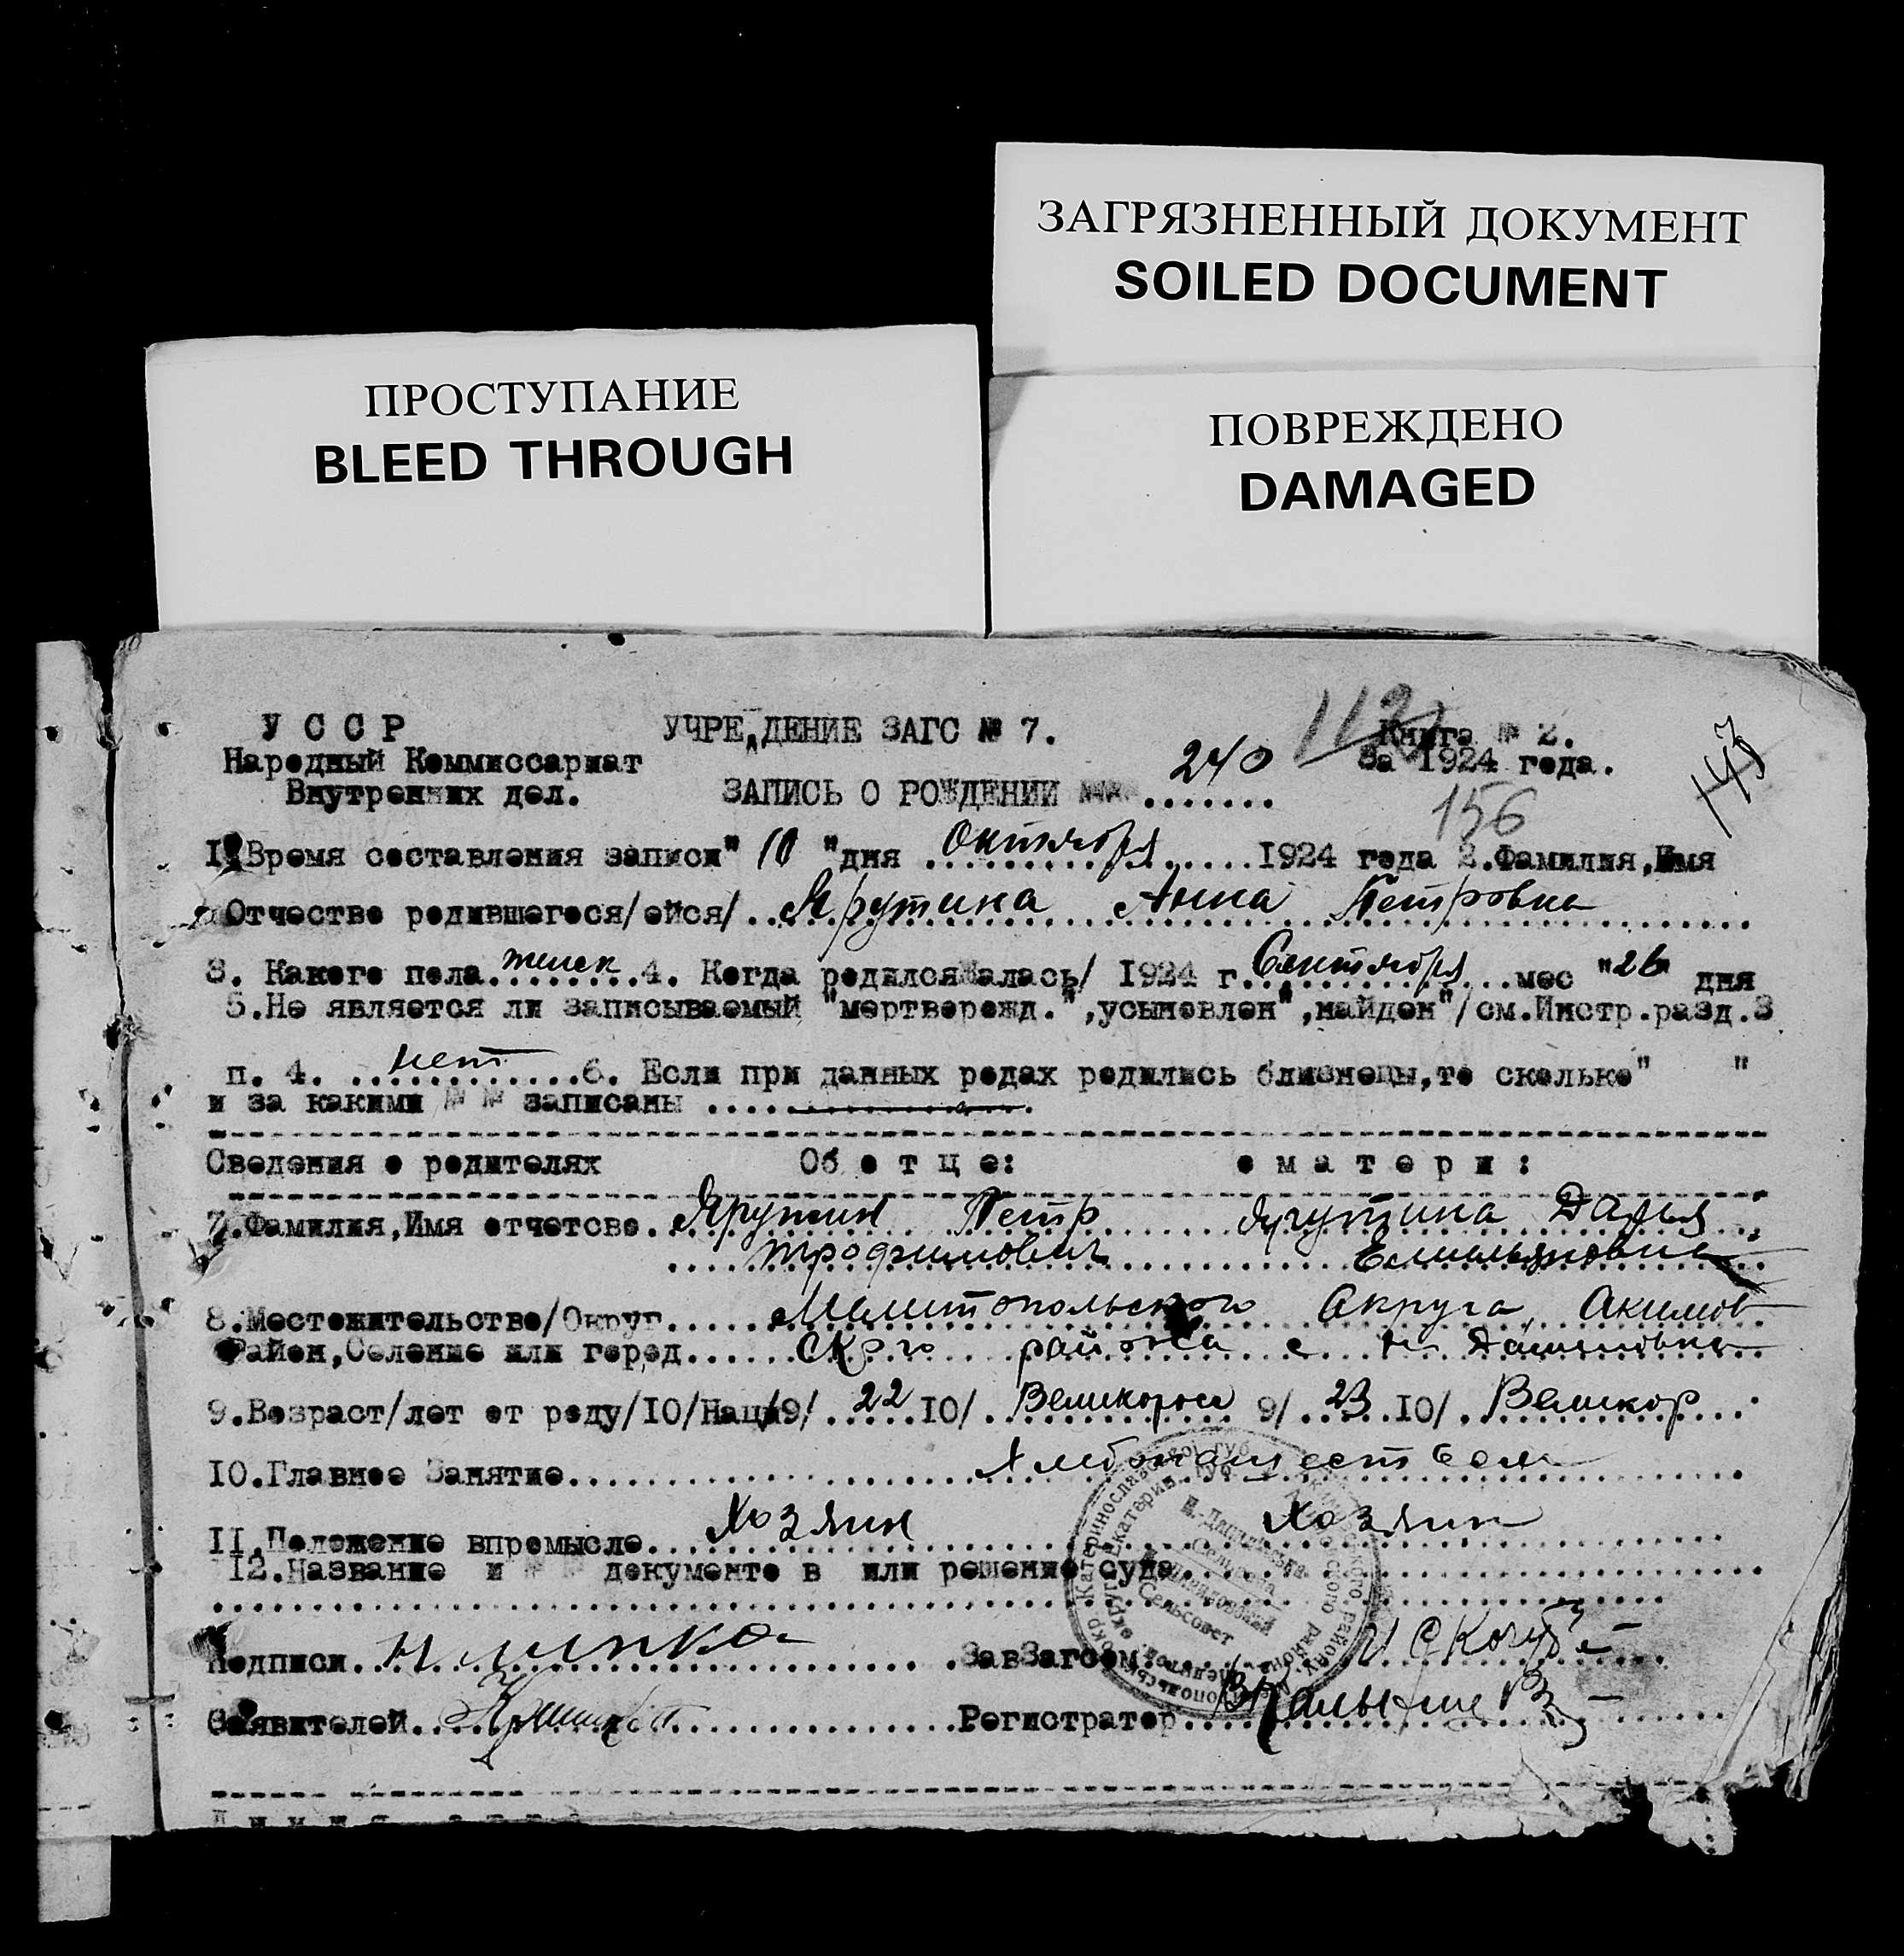 ЗАГРЯЗНЕННЫЙ ДОКУМЕНТ
SOILED DOCUMENT
ПРОСТУПАНИЕ
BLEED THROUGH
ПОВРЕЖДЕНО
DAMAGED
У С С Р УЧРЕ,ДЕНИЕ ЗАГС № 7. 112 Книга № 2.
Народный Коммиссариат 240 За 1924 года.
Внутренних дел. ЗАПИСЬ О РОЖДЕНИИ №№ .......
156
1.Время составления записи" 10 "дня Октября 1924 года 2.Фамилия,Имя
Отчество родившегося/ейся/ Ярутина Анна Петровна
3. Какого пола женск 4. Когда родился/алась/ 1924 г Сентября мес "26" дня
5.Не является ли записываемый "мертворожд.",усыновлен",найден"/см.Инстр.разд.3
п. 4. нет 6. Если при данных родах родились близнецы,то сколько" "
и за какими № № записаны
Сведения о родителях Об о т ц е: о м а т е р и :
7.Фамилия,Имя отчетсво. Ярутин Петр Ярутина Дарья
Трофимович Емельяновна
8.Местожительство/Округ Мелитопольского Округа, Акимов
Район,Селение или город ского района с. Н Даниловка
9.Возраст/лет от роду/10/Нац/9/ 22 10/ Великоросс 9/ 23 10/ Великор
10.Главное Занятие Хлебопашеством
11.Положение впромысле Хозяин Хозяин
12.Название и № № документо в или решение суда
Подписи ЗавЗагсом
Заявителей Регистратор